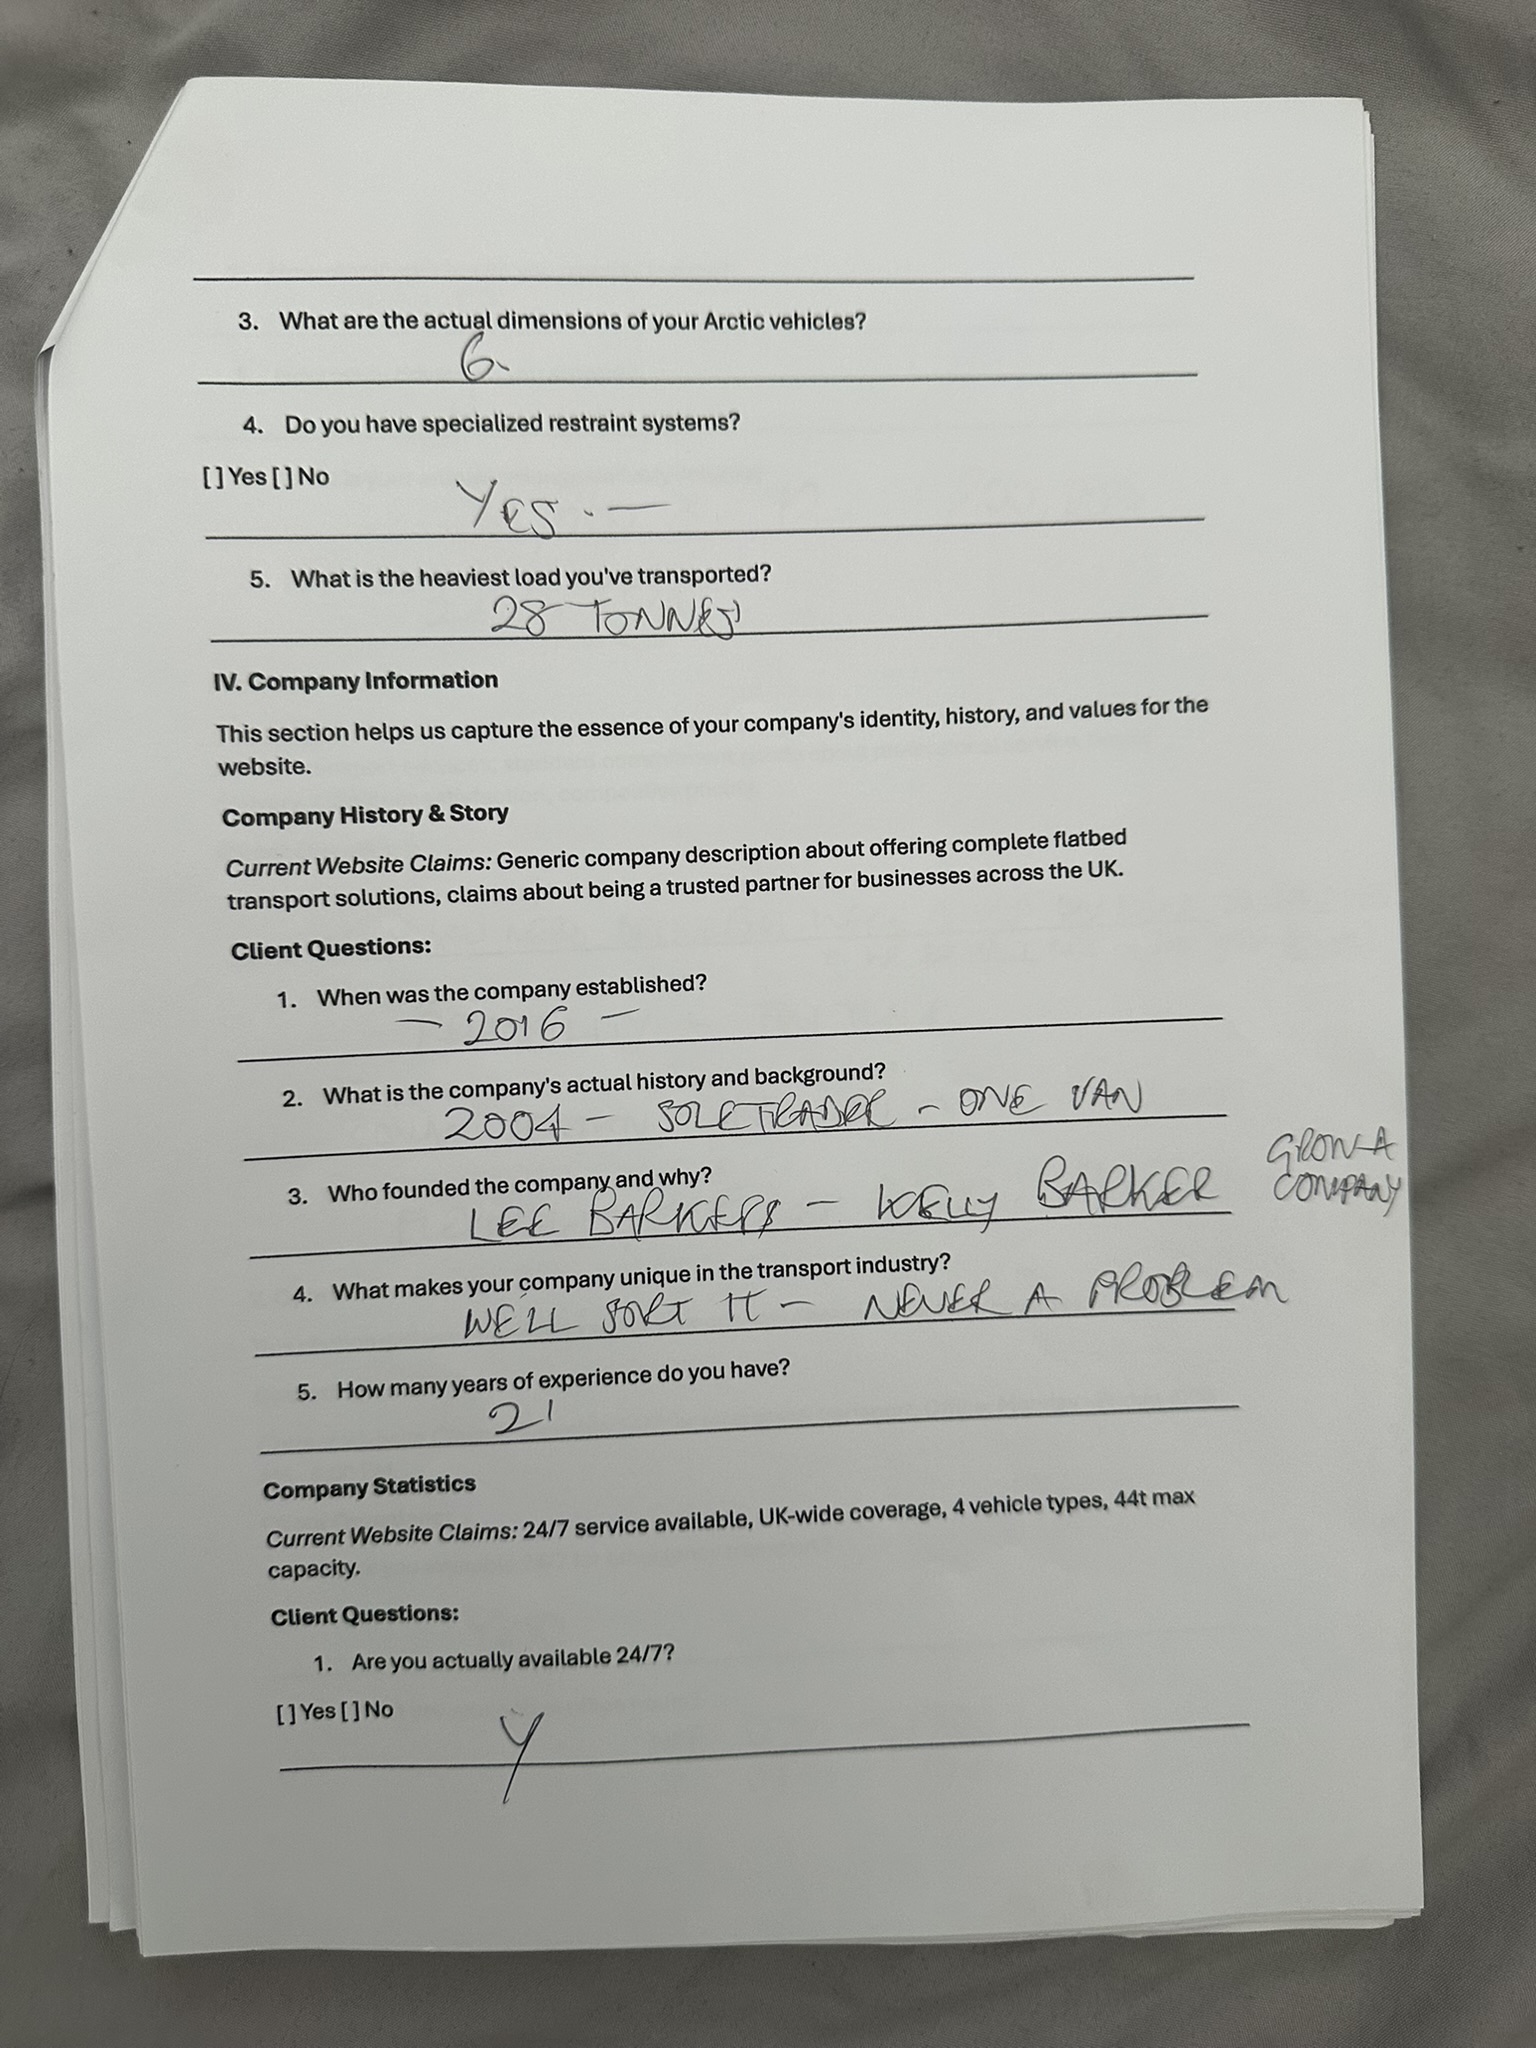 3. What are the actual dimensions of your Arctic vehicles?
6.
4. Do you have specialized restraint systems?
[ ] Yes [ ] No
YES . —
5. What is the heaviest load you've transported?
28 TONNES
IV. Company Information
This section helps us capture the essence of your company's identity, history, and values for the
website.
Company History & Story
Current Website Claims: Generic company description about offering complete flatbed
transport solutions, claims about being a trusted partner for businesses across the UK.
Client Questions:
1. When was the company established?
— 2016 —
2. What is the company's actual history and background?
2004 — SOLE TRADER - ONE VAN
3. Who founded the company and why?
LEE BARKER — KELLY BARKER
GROW A
COMPANY
4. What makes your company unique in the transport industry?
WE'LL SORT IT — NEVER A PROBLEM
5. How many years of experience do you have?
21
Company Statistics
Current Website Claims: 24/7 service available, UK-wide coverage, 4 vehicle types, 44t max
capacity.
Client Questions:
1. Are you actually available 24/7?
[ ] Yes [ ] No
Y